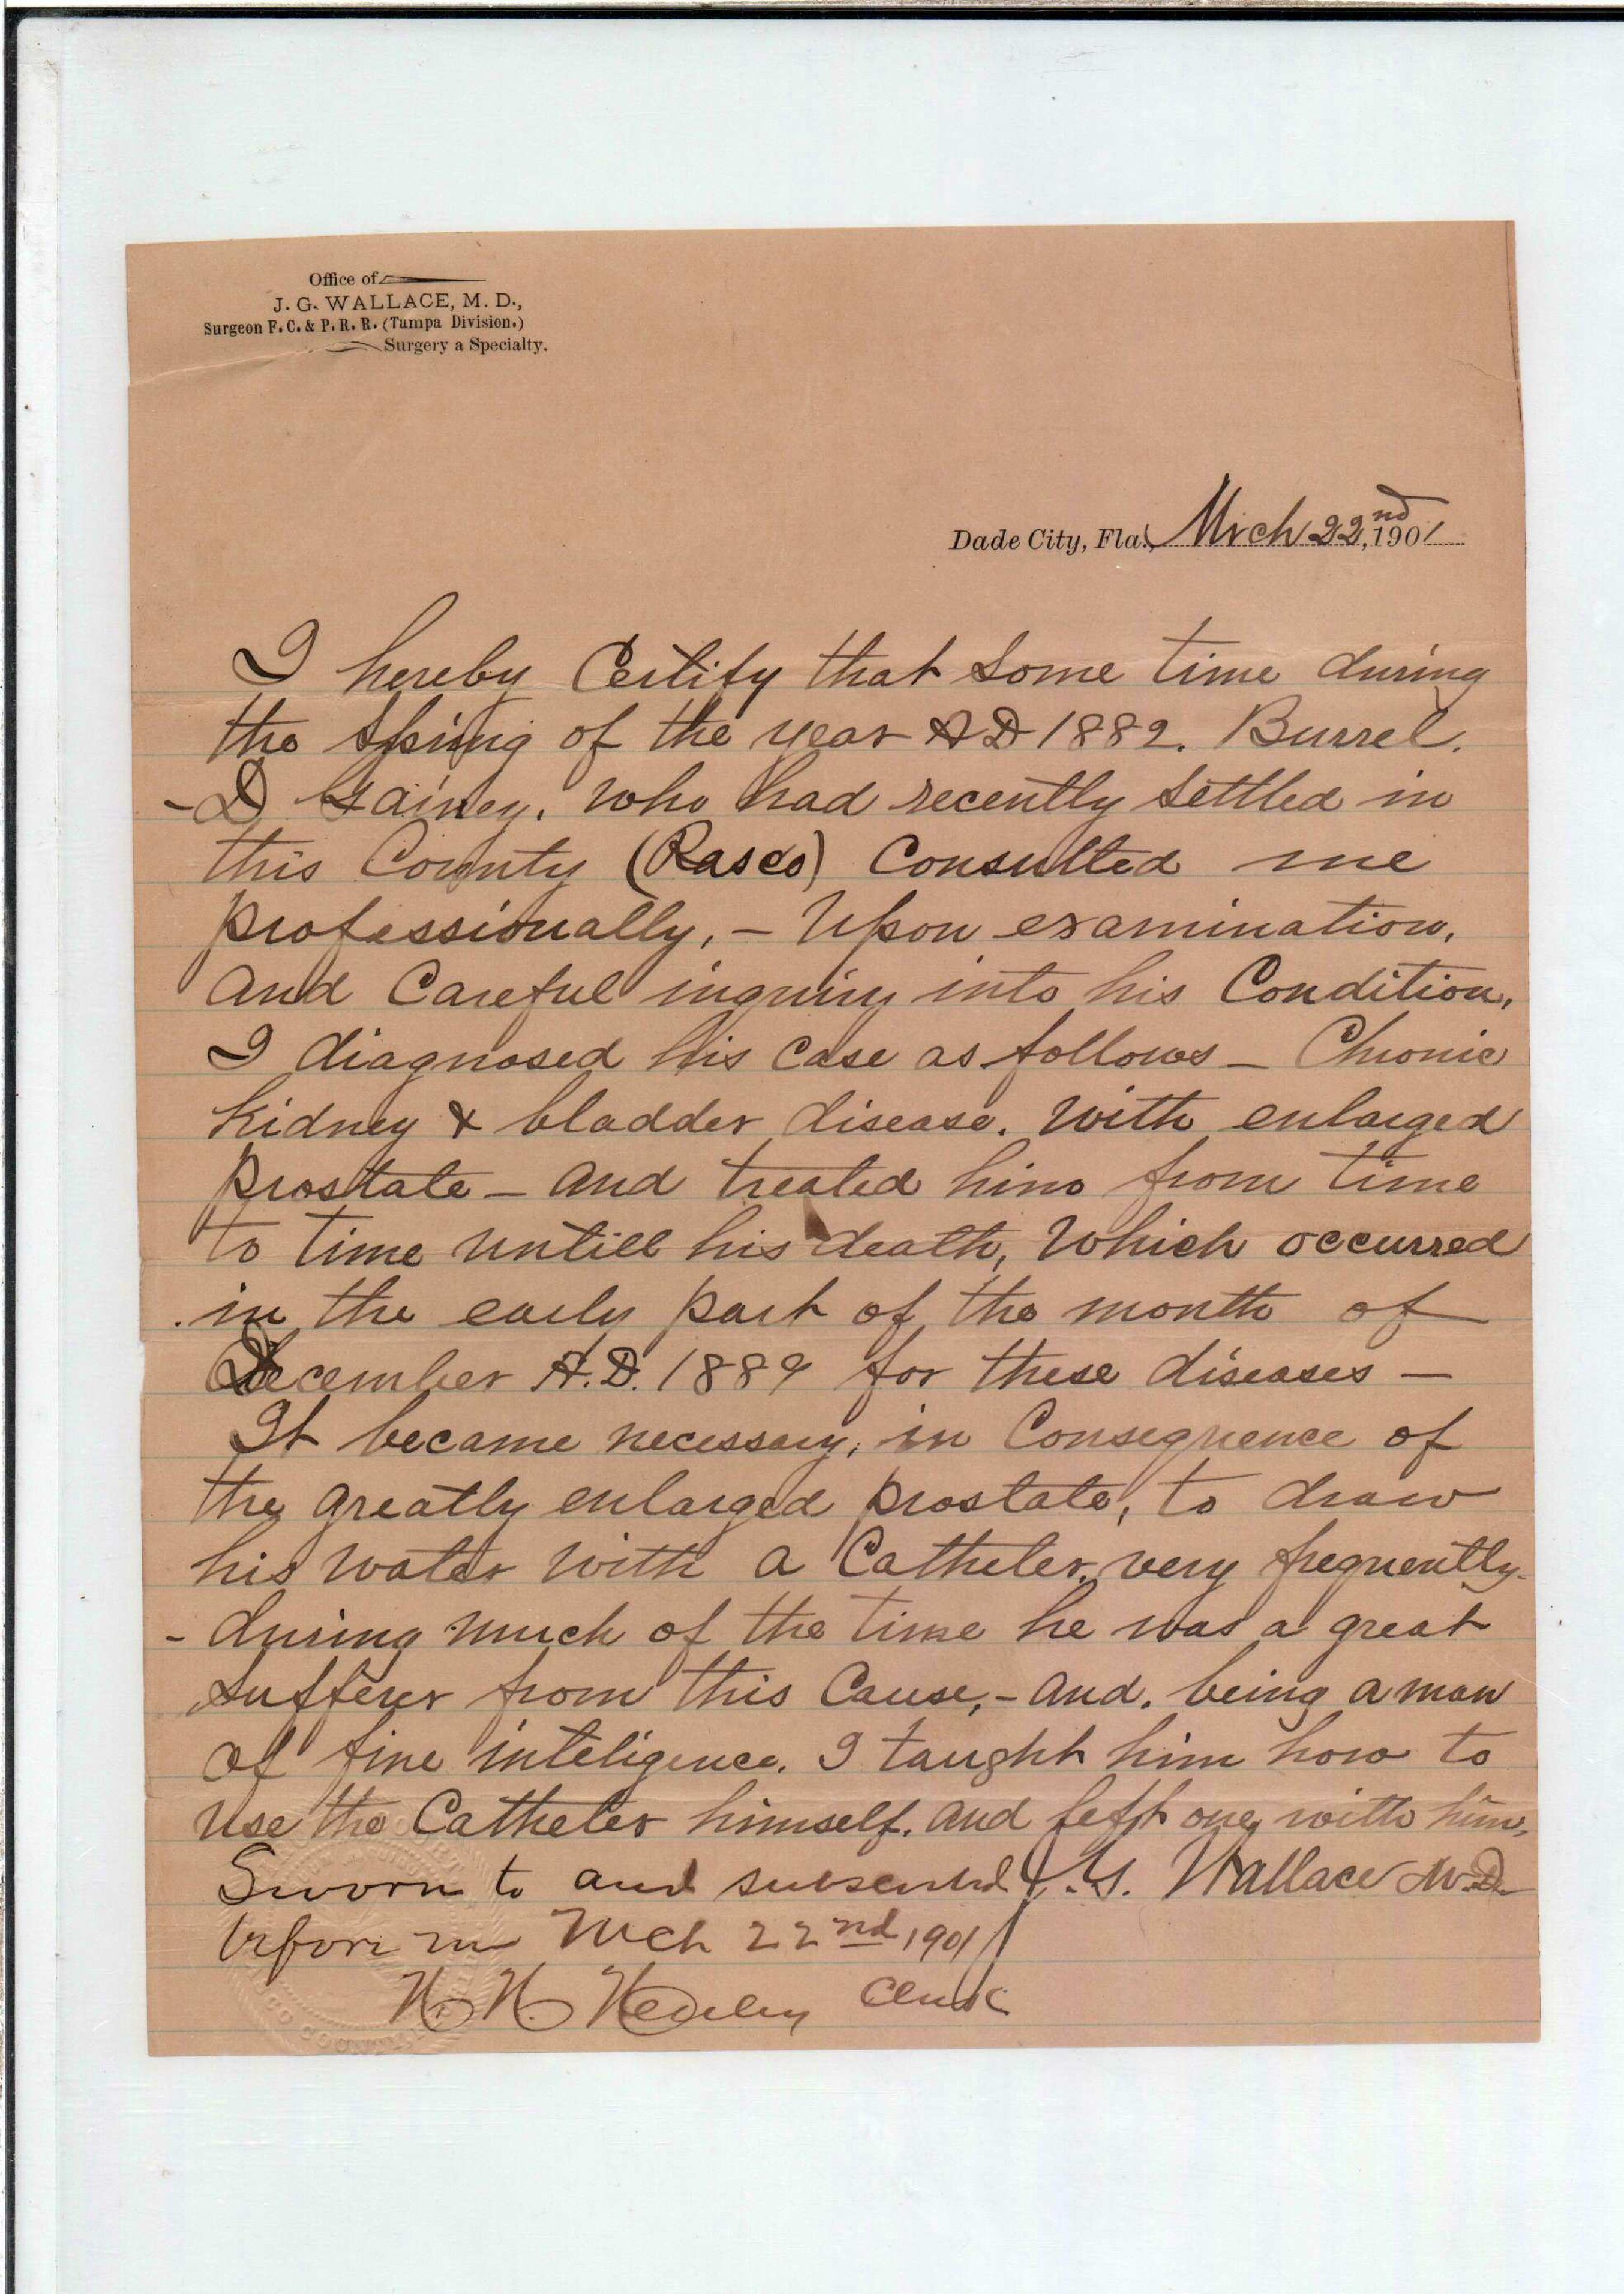 Office of
J. G. WALLACE, M. D.,
Surgeon F. C. & P. R. R. (Tampa Division.)
Surgery a Specialty.
Dade City, Fla., Mrch 22nd, 1901
I hereby Certify that some time during
the Spring of the year A D 1882. Burrel.
- D Gainey, who had recently settled in
this County (Pasco) Consulted me
professionally, - Upon examination,
and Careful inquiry into his Condition,
I diagnosed his case as follows - Chronic
Kidney & bladder disease. with enlarged
prostate - and treated him from time
to time untill his death, which occurred
in the early part of the month of
December A.D. 1889 for these diseases -
It became necessary, in Consequence of
the greatly enlarged prostate, to draw
his water with a Catheter, very frequently-
- during much of the time he was a great
sufferer from this Cause, - and, being a man
of fine inteligence. I taught him how to
use the Catheter himself, and left one with him,
Sworn to and subscribed J. G. Wallace M.D.
before me Mch 22nd 1901
Clerk